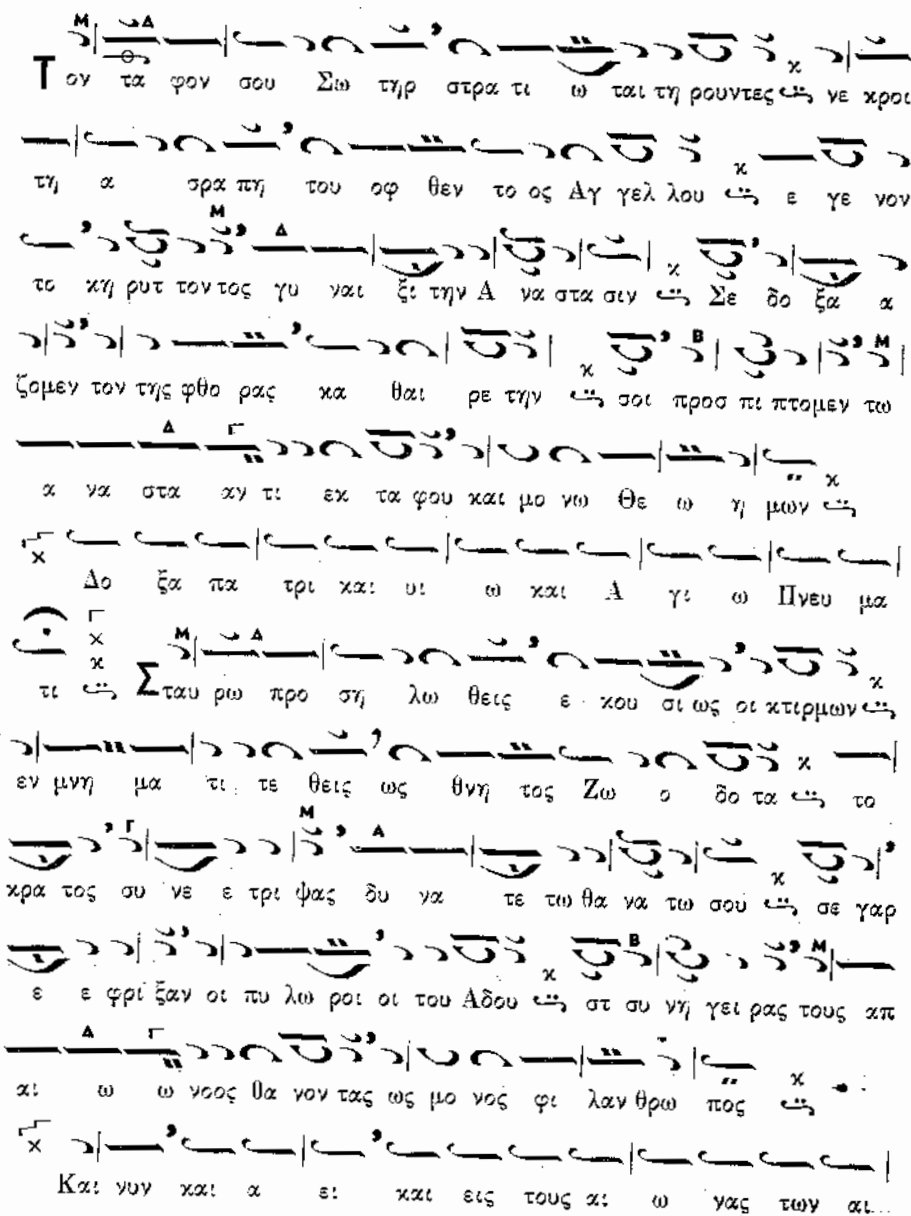 Τον τα φον σου Σω τηρ στρα τι ω ται τη ρουντες νε κροι
τη α σρα πη του οφ θεν το ος Αγ γελ λου ε γε νον
το κη ρυτ τον τος γυ ναι ξι την Α να στα σιν Σε δο ξα α
ζομεν τον της φθο ρας κα θαι ρε την σοι προσ πι πτομεν τω
α να στα αν τι εκ τα φου και μο νω Θε ω η μων
Δο ξα πα τρι και υι ω και Α γι ω Πνευ μα
τι Σταυ ρω προ ση λω θεις ε κου σι ως οι κτιρμων
εν μνη μα τι τε θεις ως θνη τος Ζω ο δο τα το
κρα τος συ νε ε τρι ψας δυ να τε τω θα να τω σου σε γαρ
ε ε φρι ξαν οι πυ λω ροι οι του Αδου στ συ νη γει ρας τους απ
αι ω ω νοος θα νον τας ως μο νος φι λαν θρω πος
Και νυν και α ει και εις τους αι ω νας των αι...